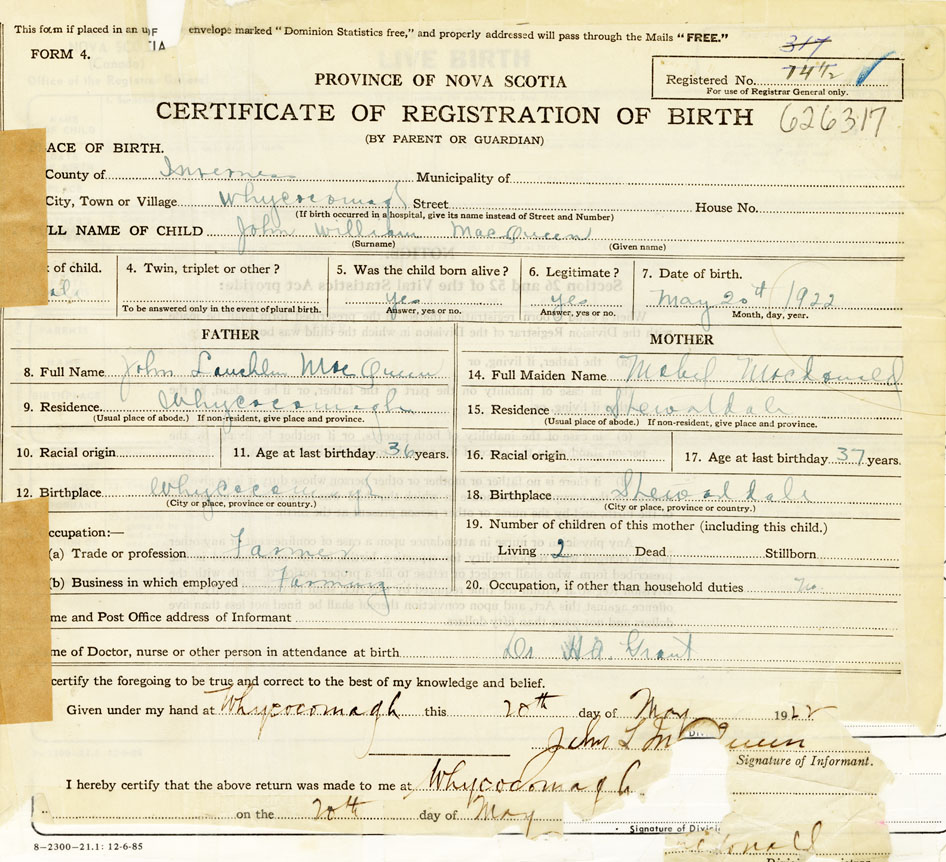 This form if placed in an u envelope marked "Dominion Statistics free," and properly addressed will pass through the Mails "FREE."
FORM 4.
317
PROVINCE OF NOVA SCOTIA
Registered No. 74½
For use of Registrar General only.
CERTIFICATE OF REGISTRATION OF BIRTH 626317
(BY PARENT OR GUARDIAN)
ACE OF BIRTH.
County of Inverness Municipality of
City, Town or Village Whycocomagh Street House No.
(If birth occurred in a hospital, give its name instead of Street and Number)
LL NAME OF CHILD John William MacQueen
(Surname) (Given name)
x of child. 4. Twin, triplet or other? 5. Was the child born alive? 6. Legitimate? 7. Date of birth.
ale yes yes May 20th 1922
To be answered only in the event of plural birth. Answer, yes or no. Answer, yes or no. Month, day, year.
FATHER MOTHER
8. Full Name John Lauchlin MacQueen 14. Full Maiden Name Mabel Macdonald
9. Residence Whycocomagh 15. Residence Stewartdale
(Usual place of abode.) If non-resident, give place and province. (Usual place of abode.) If non-resident, give place and province.
10. Racial origin 11. Age at last birthday 36 years. 16. Racial origin 17. Age at last birthday 37 years.
12. Birthplace Whycocomagh 18. Birthplace Stewartdale
(City or place, province or country.) (City or place, province or country.)
19. Number of children of this mother (including this child.)
ccupation:—
(a) Trade or profession Farmer Living 2 Dead Stillborn
(b) Business in which employed Farming 20. Occupation, if other than household duties No
me and Post Office address of Informant
me of Doctor, nurse or other person in attendance at birth Dr HA. Grant
certify the foregoing to be true and correct to the best of my knowledge and belief.
Given under my hand at Whycocomagh this 20th day of May 1922
John L McQueen
Signature of Informant.
I hereby certify that the above return was made to me at Whycocomagh
on the 20th day of May
Signature of Divisi
onald
8–2300–21.1: 12-6-85